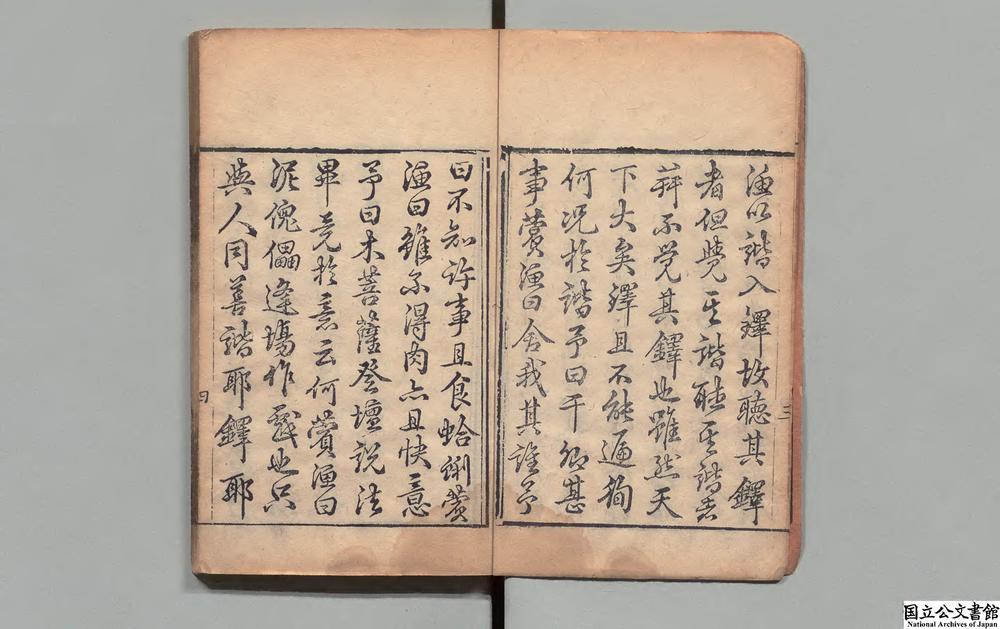 漁以諧入鐸故聽其鐸
者但覺其諧聽其諧者
并不覺其鐸也雖然天
下大矣鐸且不能遍徇
何況於諧予曰干卿甚
事薲漁曰舍我其誰予
三
曰不知許事且食蛤蜊薲
漁曰雖不得肉亦且快意
予曰木菩薩登壇說法
畢竟於意云何薲漁曰
泥傀儡逢場作戲也只
與人同善諧耶鐸耶
四
国立公文書館
National Archives of Japan